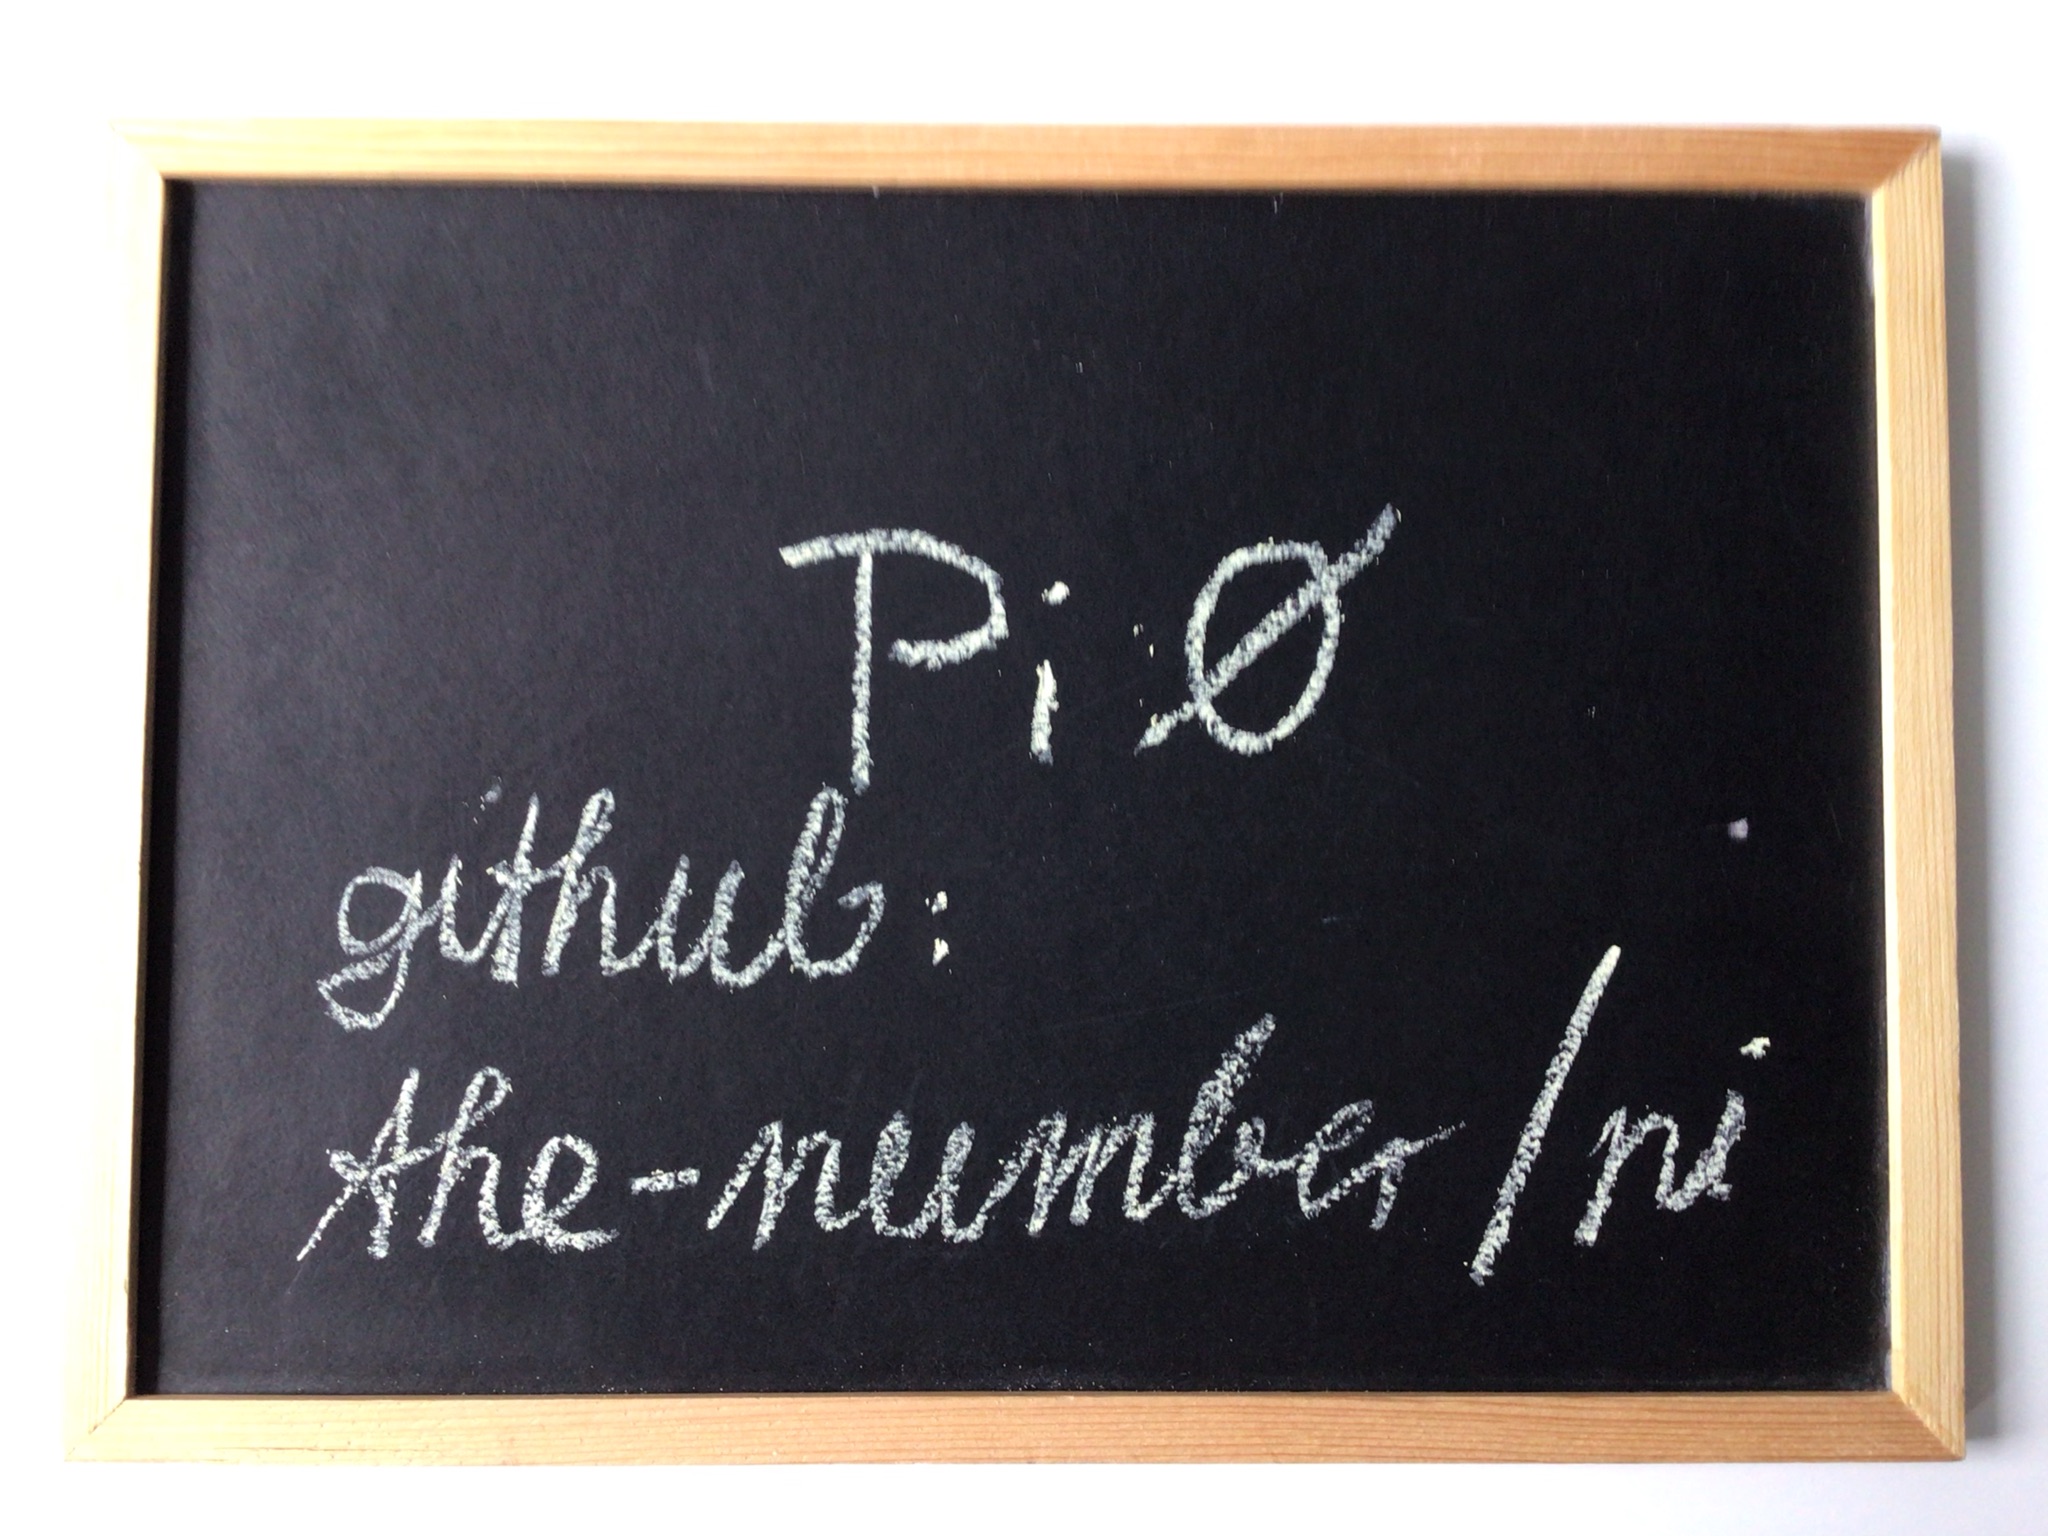 Pi Ø
github:
the-number/pi